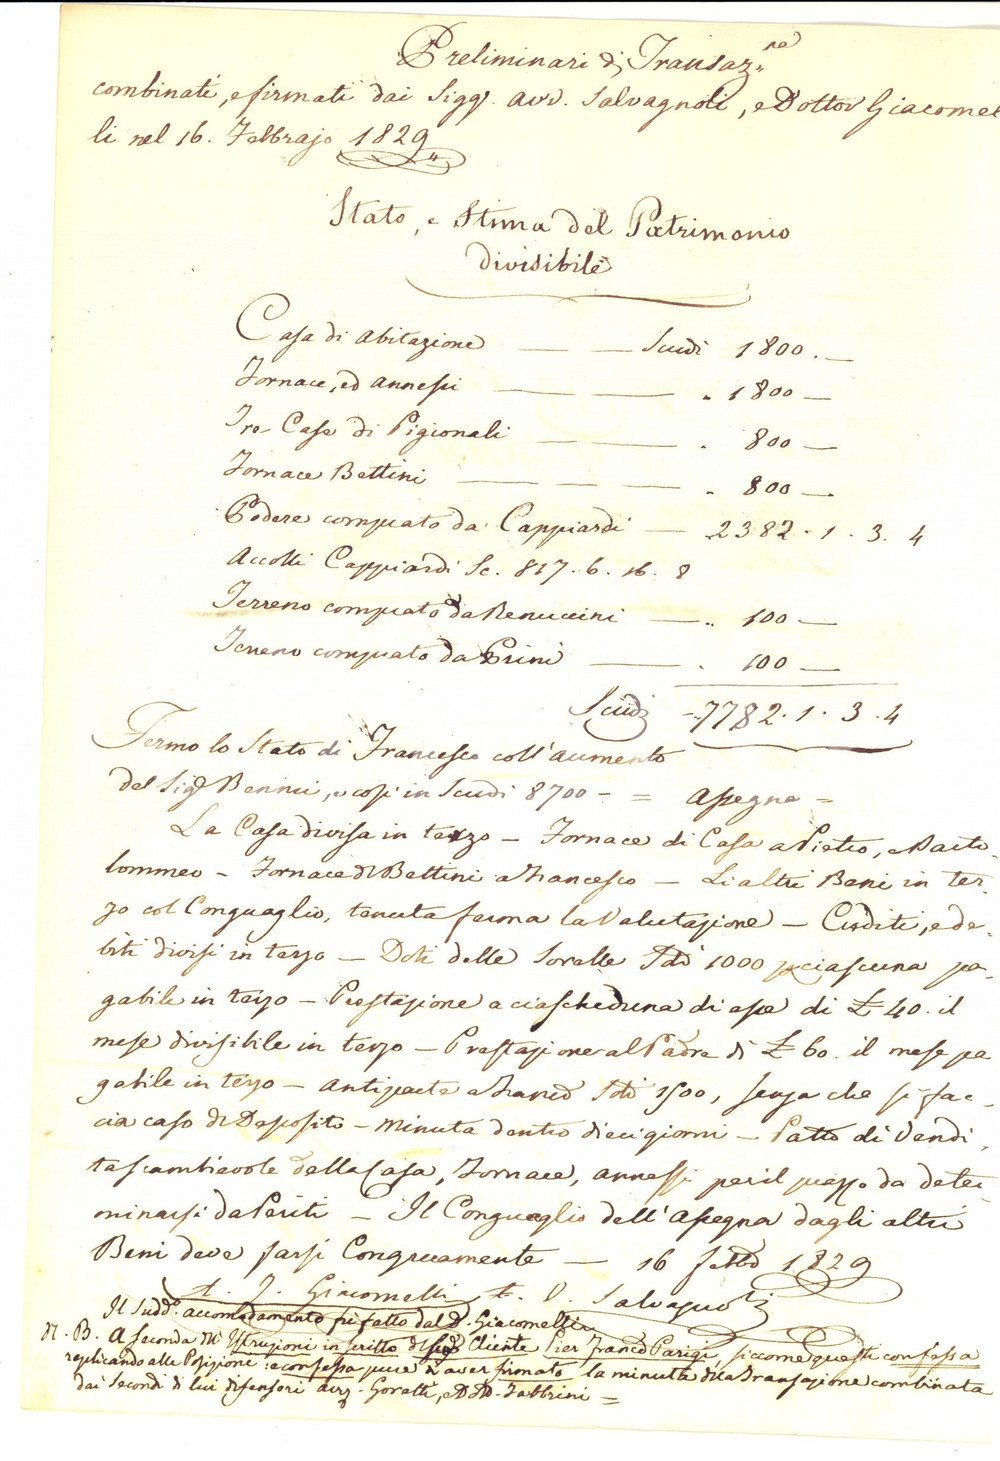 Preliminari di Transaz.ne
combinati, e firmati dai Sigg.ri Avv. Salvagnoli, e Dottor Giacomel
li nel 16. Febbrajo 1829
Stato, e Stima del Patrimonio
divisibile
Casa di abitazione — — Scudi 1800. —
Fornace, ed annessi — — " 1800 —
Tre Case di Pigionali — — " 800 —
Fornace Bettini — — — " 800 —
Podere comprato da Cappiardi — 2382. 1. 3. 4
Accolli Cappiardi Sc. 817. 6. 16. 8
Terreno comprato da Renuccini — " 100 —
Terreno comprato da Prini — " 100 —
Scudi 7782. 1. 3. 4
Fermo lo Stato di Francesco coll'aumento
del Sig.r Bennui, e così in Scudi 8700 — = Assegna =
La Casa divisa in terzo — Fornace di Casa a Pietro, e Barto-
lommeo — Fornace di Bettini a Francesco — Li altri Beni in ter-
zo col Conguaglio, tenuta ferma la Valutazione — Crediti, e de-
biti divisi in terzo — Doti delle Sorelle Sdi 1000 p. ciascuna pa-
gabile in terzo — Prestazione a ciascheduna di esse di £ 40. il
mese divisibile in terzo — Prestazione al Padre di £ 60. il mese pa
gabile in terzo — Antiparte a Franco Sdi 1500, senza che si fac-
cia caso di Deposito — Minuta dentro dieci giorni — Patto di Vendi-
ta scambievole della Casa, Fornace, annessi per il prezzo da deter-
minarsi da Periti — Il Conguaglio dell'Assegna dagli altri
Beni deve farsi Congruamente — 16 febb.o 1829
A. J. Giacomelli A. V. Salvagnoli
Il Sudd.o accomodamento fù fatto dal D. Giacomelli
N. B. A seconda dell'Istruzioni in scritto del suo Cliente Pier Franco Parigi, siccome questi confessa
replicando alle Posizioni: e confessa pure di aver firmato la minuta della Transazione combinata
dai Secondi di lui difensori avv. Goratti, e D. Fabbrini =